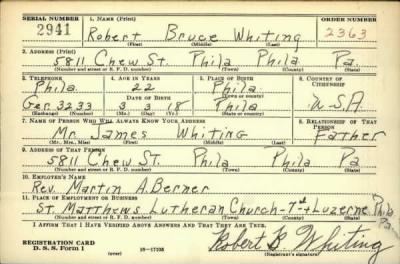 SERIAL NUMBER 1. NAME (Print) ORDER NUMBER
2941 Robert Bruce Whiting 2363
(First) (Middle) (Last)
2. ADDRESS (Print)
5811 Chew St. Phila Phila Pa.
(Number and street or R. F. D. number) (Town) (County) (State)
3. TELEPHONE 4. AGE IN YEARS 5. PLACE OF BIRTH 6. COUNTRY OF CITIZENSHIP
Phila. 22 Phila.
DATE OF BIRTH (Town or county)
Ger. 3233 3 3 18 Pa USA
(Exchange) (Number) (Mo.) (Day) (Yr.) (State or country)
7. NAME OF PERSON WHO WILL ALWAYS KNOW YOUR ADDRESS 8. RELATIONSHIP OF THAT PERSON
Mr. James Whiting Father
(Mr., Mrs., Miss) (First) (Middle) (Last)
9. ADDRESS OF THAT PERSON
5811 Chew St. Phila Phila Pa
(Number and street or R. F. D. number) (Town) (County) (State)
10. EMPLOYER'S NAME
Rev. Martin A. Berner
11. PLACE OF EMPLOYMENT OR BUSINESS
St. Matthews Lutheran Church - 7th + Luzerne Phila Pa
(Number and street or R. F. D. number) (Town) (County) (State)
I AFFIRM THAT I HAVE VERIFIED ABOVE ANSWERS AND THAT THEY ARE TRUE.
REGISTRATION CARD
D. S. S. Form 1 (over) 16-17105 Robert B Whiting